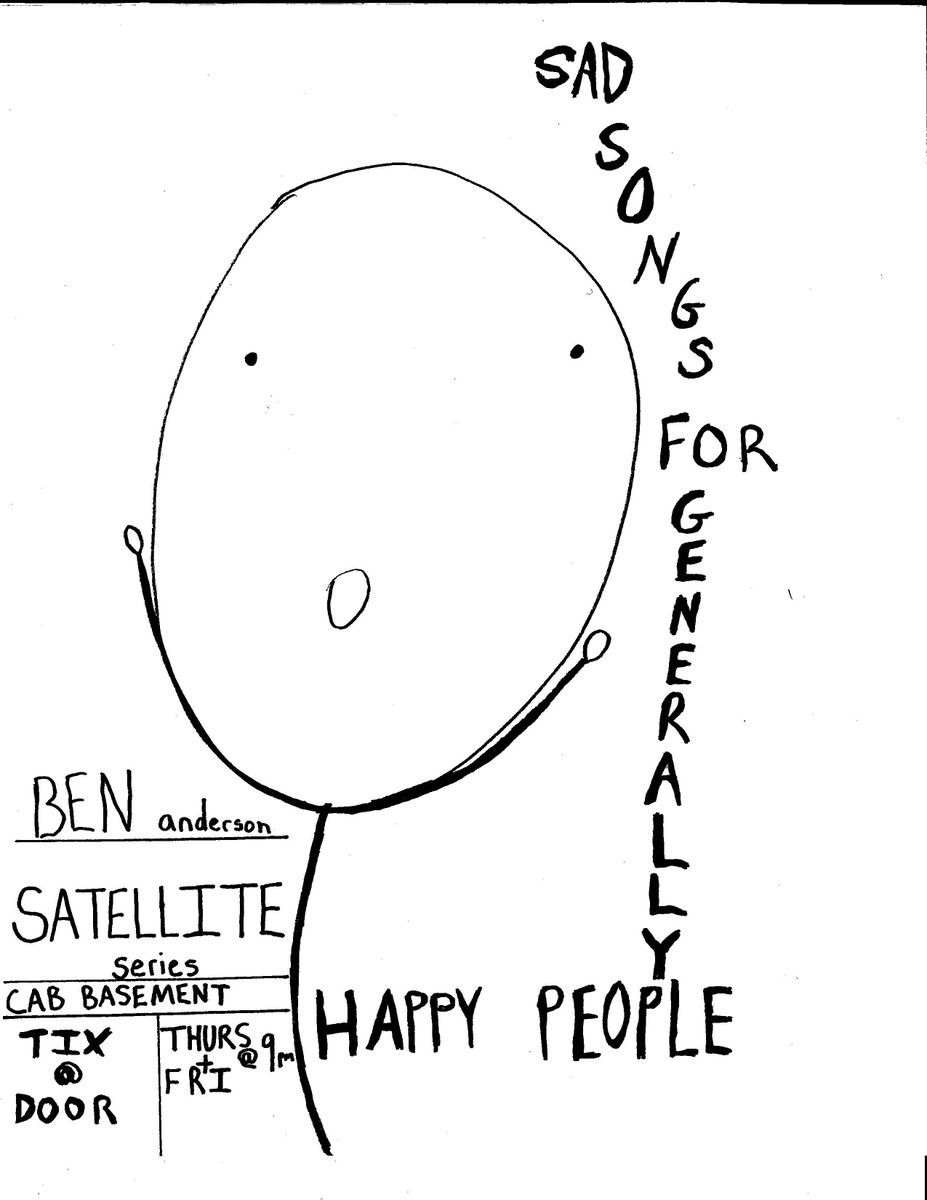 SAD
SONGS
FOR
GENERALLY
HAPPY PEOPLE
BEN anderson
SATELLITE
series
CAB BASEMENT
TIX
@
DOOR
THURS
+
FRI
@ 9pm